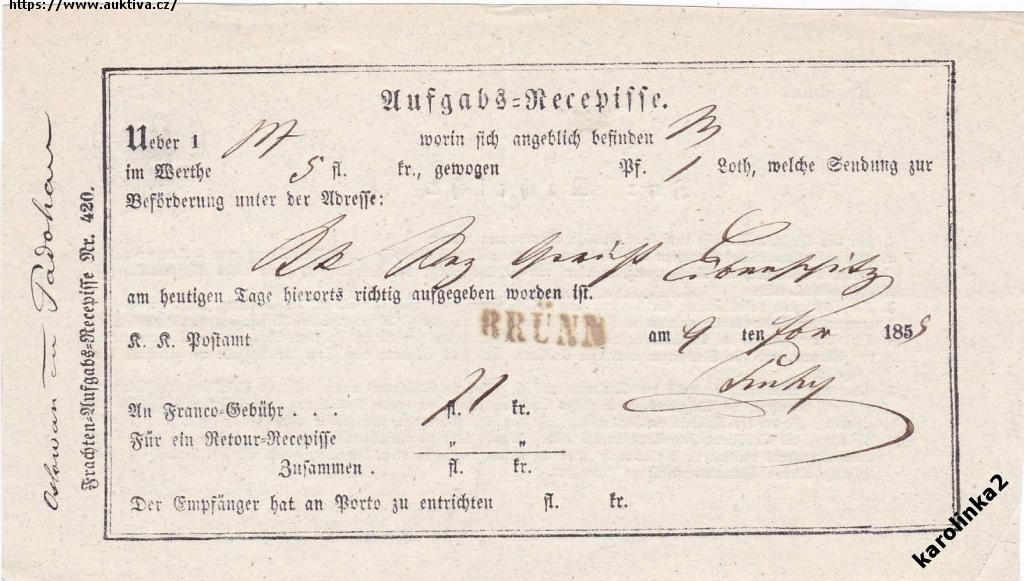 https://www.auktiva.cz/
Aufgabs=Recepisse.
Ueber 1 worin sich angeblich befinden
im Werthe 5 fl. kr., gewogen Pf. 1 Loth, welche Sendung zur
Beförderung unter der Adresse:
Bez Gericht Eibenschitz
am heutigen Tage hierorts richtig aufgegeben worden ist.
K. K. Postamt BRÜNN am 9 ten 1855
An Franco=Gebühr . . . fl. 21 kr.
Für ein Retour=Recepisse „ „
Zusammen . fl. kr.
Der Empfänger hat an Porto zu entrichten fl. kr.
Frachten=Aufgabs=Recepisse Nr. 420.
Oslawan Padohau
karolinka2